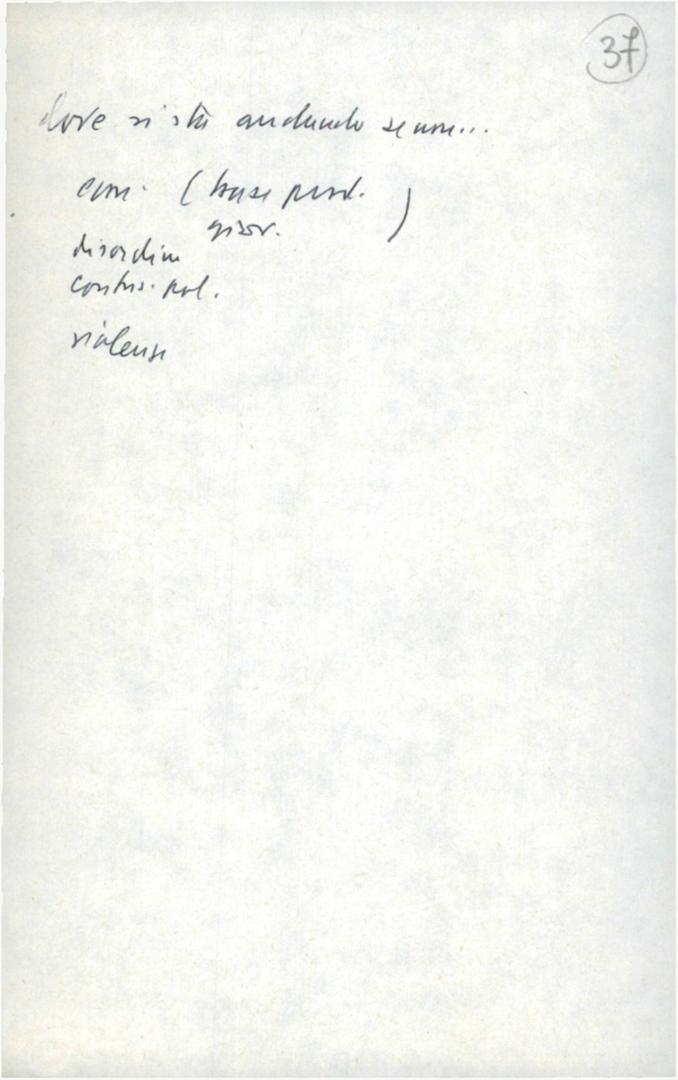 37
dove si sta andando se non...
(base prod.
giov. )
disordini
contr. pol.
violenze